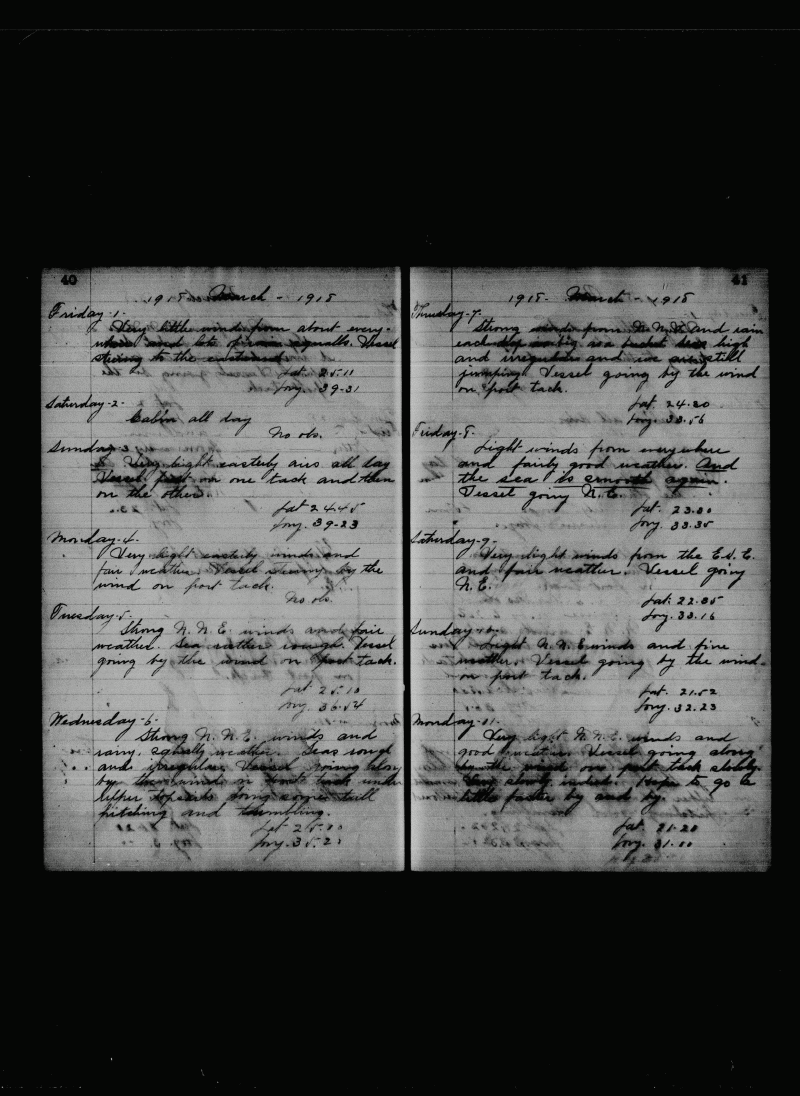 40
1918 March - 1918
Friday-1-
Very little wind from about every-
where and lots of rain squalls. Vessel
steering to the eastward.
Lat. 25.11
Long. 39-31
Saturday-2-
Calm all day
No obs.
Sunday-3-
Very light easterly airs all day
Vessel first on one tack and then
on the other.
Lat 24.45
Long. 39-23
Monday-4-
Very light easterly winds and
fair weather. Vessel by the
wind on port tack.
No obs.
Tuesday-5-
Strong N.N.E winds and fair
weather. Sea rather rough. Vessel
going by the wind on port tack.
Lat 25.10
Long. 36.54
Wednesday-6-
Strong N.N.E. winds and
rainy, squally weather. Seas rough
and irregular. Vessel going along
by the wind on port tack under
upper topsails doing some tall
pitching and tumbling.
Lat 25.
Long. 35.2
41
1918- March - 1918
Thursday-7-
Strong winds from N.N.E and rain
each day big sea high
and irregular and we are still
jumping. Vessel going by the wind
on port tack.
Lat. 24.20
Long. 33.56
Friday-8-
Light winds from everywhere
and fairly good weather. And
the sea is smooth again.
Vessel going N.E.
Lat. 23.00
Long. 33.35
Saturday-9-
Very light winds from the E.S.E.
and fair weather. Vessel going
N.E.
Lat. 22.05
Long. 33.16
Sunday-10-
Light N.N.E winds and fine
weather. Vessel going by the wind
on port tack.
Lat. 21.52
Long. 32.23
Monday-11-
Very light N.N.E. winds and
good weather. Vessel going along
by the wind on port tack slowly.
Very slowly indeed. Hope to go a
little faster by and by.
Lat. 21.20
Long. 31.00